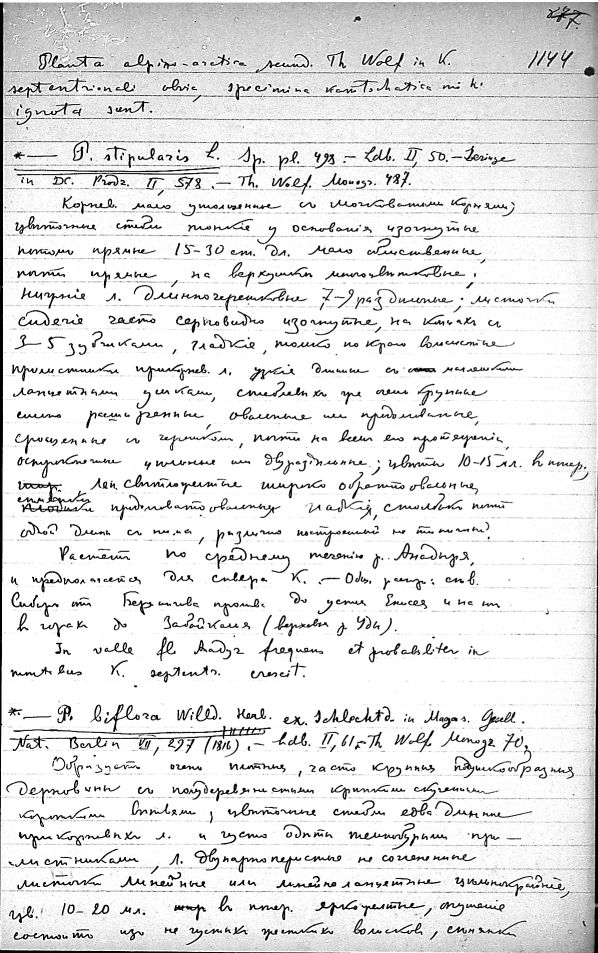 277.
1144
Planta alpino-arctica secund. Th Wolf in K.
septentrionali obvia, specimina kamtschatica mihi
ignota sunt.
*— P. stipularis L. Sp. pl. 498.— Ldb. II, 50.— Seringe
in DC. Prodr. II, 578.— Th. Wolf. Monogr. 487.
Корнев. мало утолщенные с мочковатыми корнями;
цвѣточные стебли тонкие у основания изогнутые
потом прямые 15-30 ст. дл. мало облиственные,
почти прямые, на верхушкѣ многоцвѣтковые;
нижние л. длинночерешковые 7-9 раздѣльные; листочки
сидячие часто серповидно изогнутые, на концах с
3-5 зубчиками, гладкие, только по краю волосистые
прилистники прикорнев. л. узкие длинные с маленькими
ланцетными ушками, стеблевых же очень крупные
сильно расширенные, овальные или продолговатые,
сросшенные с черешком, почти на всем его протяжении,
остроконечные цѣльные или двураздѣльные; цвѣты 10-15 мл. в попер.,
леп. свѣтложелтые широко обратноовальные
продолговатоовальные гладкия, столбик почти
одной длины с ними, различно построенный не типичный.
Растет по среднему течению р. Анадыря,
и предполагается для сѣвера К. — Общ. распр.: сѣв.
Сибирь от Берингова пролива до устья Енисея и на юг
в горах до Забайкалья (верховья р Уды).
In valle fl. Anadyr frequens et probabiliter in
montibus K. septentr. crescit.
*— P. biflora Willd. Herb. ex Schlechtd. in Magaz. Gesell.
Nat. Berlin VII, 297 (1816).— Ldb. II, 61.— Th Wolf. Monogr 70,
Образует очень плотныя, часто крупныя подушкообразныя
дерновины с полудеревянистыми крѣпкими скученными
короткими вѣтвями; цвѣточные стебли едва длиннѣе
прикорневых л. и густо одѣты темнобурыми при-
листниками, л. двупарноперистые не сочлененные
листочки линейные или линейноланцетные цѣльнокрайние,
цв. 10-20 мл. в попер. яркожелтые, опушение
состоит из не густых жестких волосков, сѣмянки